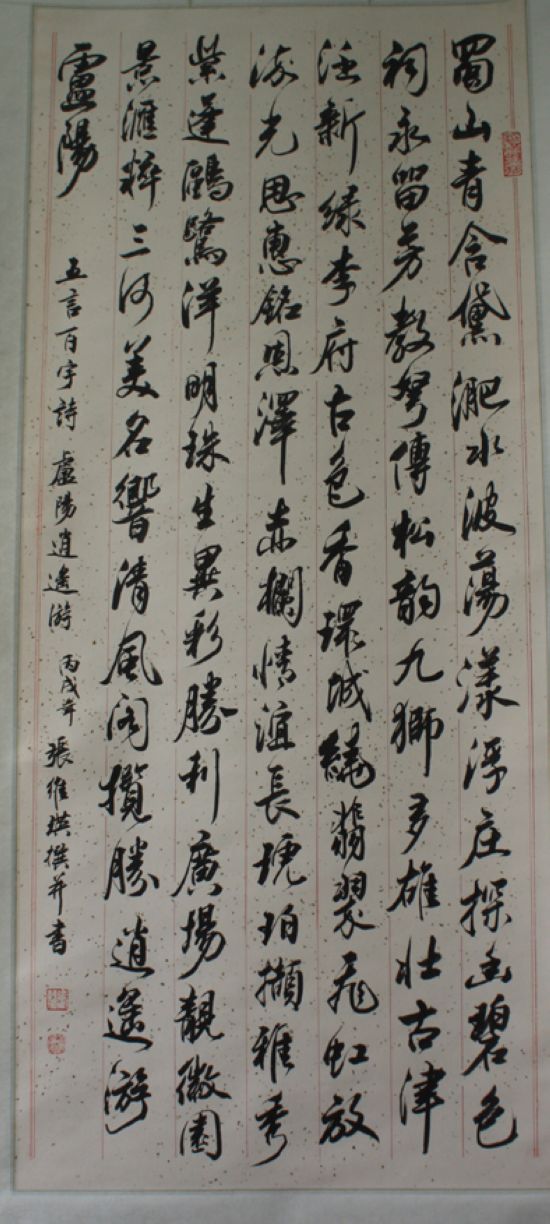 蜀山青含黛淝水波蕩漾浮庄探幽碧色
祠永留芳教弩傳松韵九獅多雄壯古津
泛新绿李府古色香環城繞翡翠飛虹放
流光恩惠銘恩澤赤欄情誼長琥珀擷雅秀
紫蓬鷗鷺洋明珠生異彩勝利廣場靚徽園
景滙粹三河美名響清風阁攬勝逍遙游
廬陽
五言百字詩 廬陽逍遙游 丙戌年 張維琪撰并書